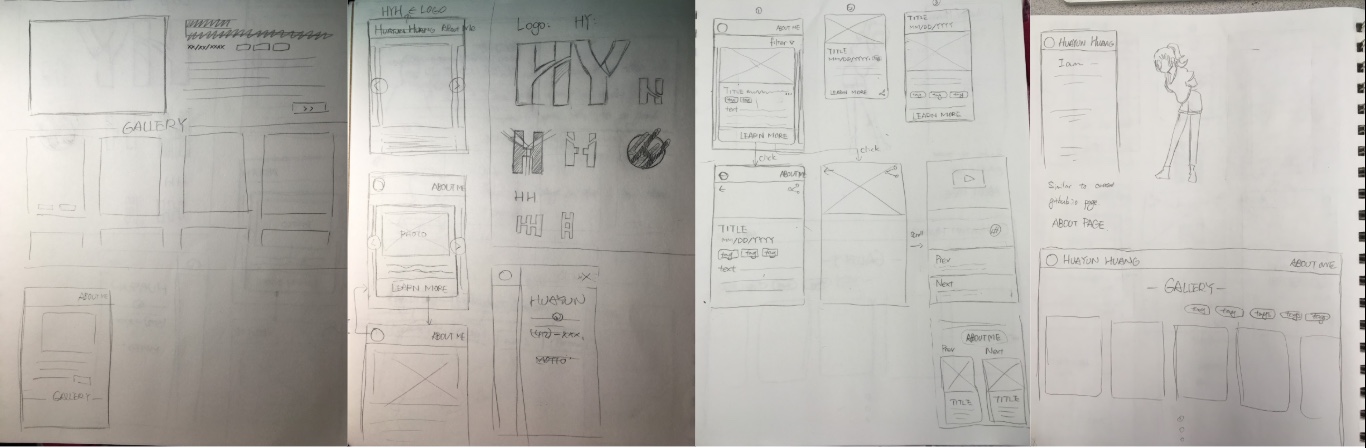 xx/xx/xxxx
>>
GALLERY
ABOUT ME
GALLERY
HYH ← LOGO
HUAYUN HUANG About Me
ABOUT ME
PHOTO
LEARN MORE
ABOUT ME
Logo: HY:
HY
H
HH
HUAYUN
①
ABOUT ME
filter
TITLE
tag tag
text
LEARN MORE
click
②
TITLE
MM/DD/YYYY
LEARN MORE
click
③
TITLE
MM/DD/YYYY
tag tag tag
LEARN MORE
ABOUT ME
TITLE
MM/DD/YYYY
tag tag tag
text
Prev
Next
ABOUT ME
Prev Next
TITLE TITLE
HUAYUN HUANG
I am
Similar to
github.io page
ABOUT PAGE
HUAYUN HUANG ABOUT ME
GALLERY
tag tag tag tag tag